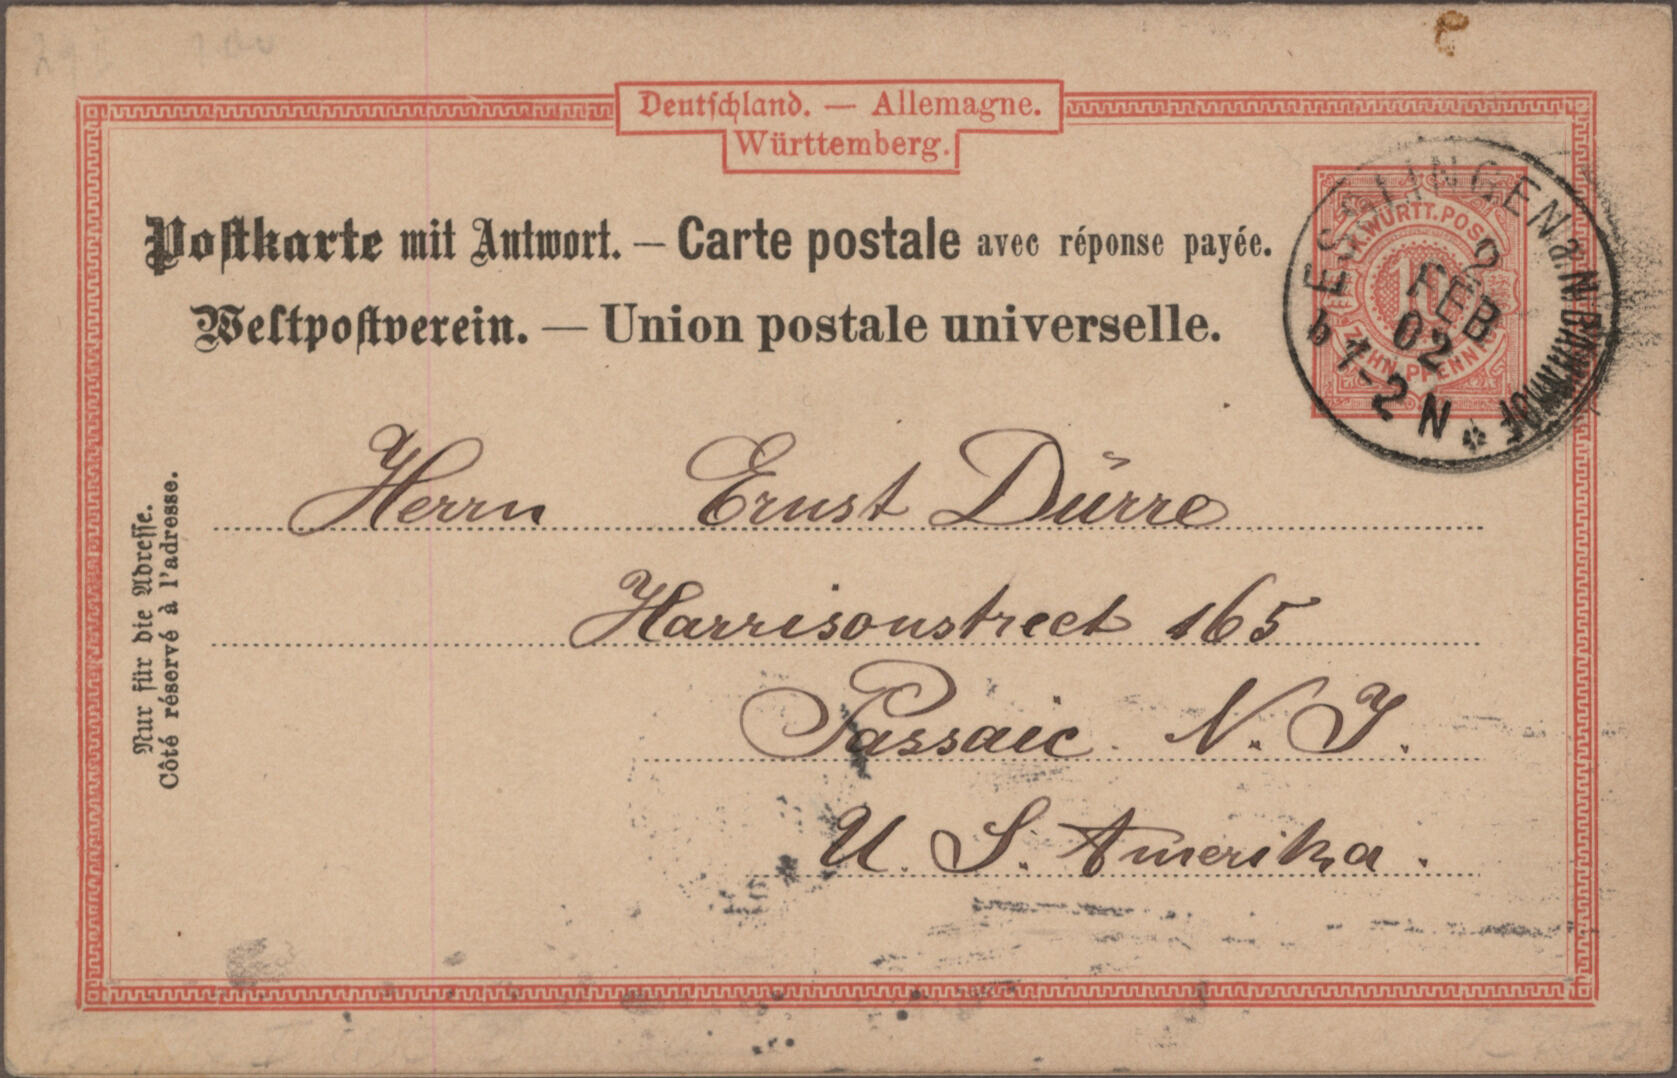 Deutschland. — Allemagne.
Württemberg.
Postkarte mit Antwort. — Carte postale avec réponse payée.
Weltpostverein. — Union postale universelle.
K. WÜRTT. POST
10
ZEHN PFENNIG
ESSLINGEN a. N. BAHNHOF
2
FEB
02
b 1-2 N
Herrn Ernst Dürre
Harrisonstreet 165
Passaic N. J.
U. S. Amerika.
Nur für die Adresse.
Côté réservé à l'adresse.